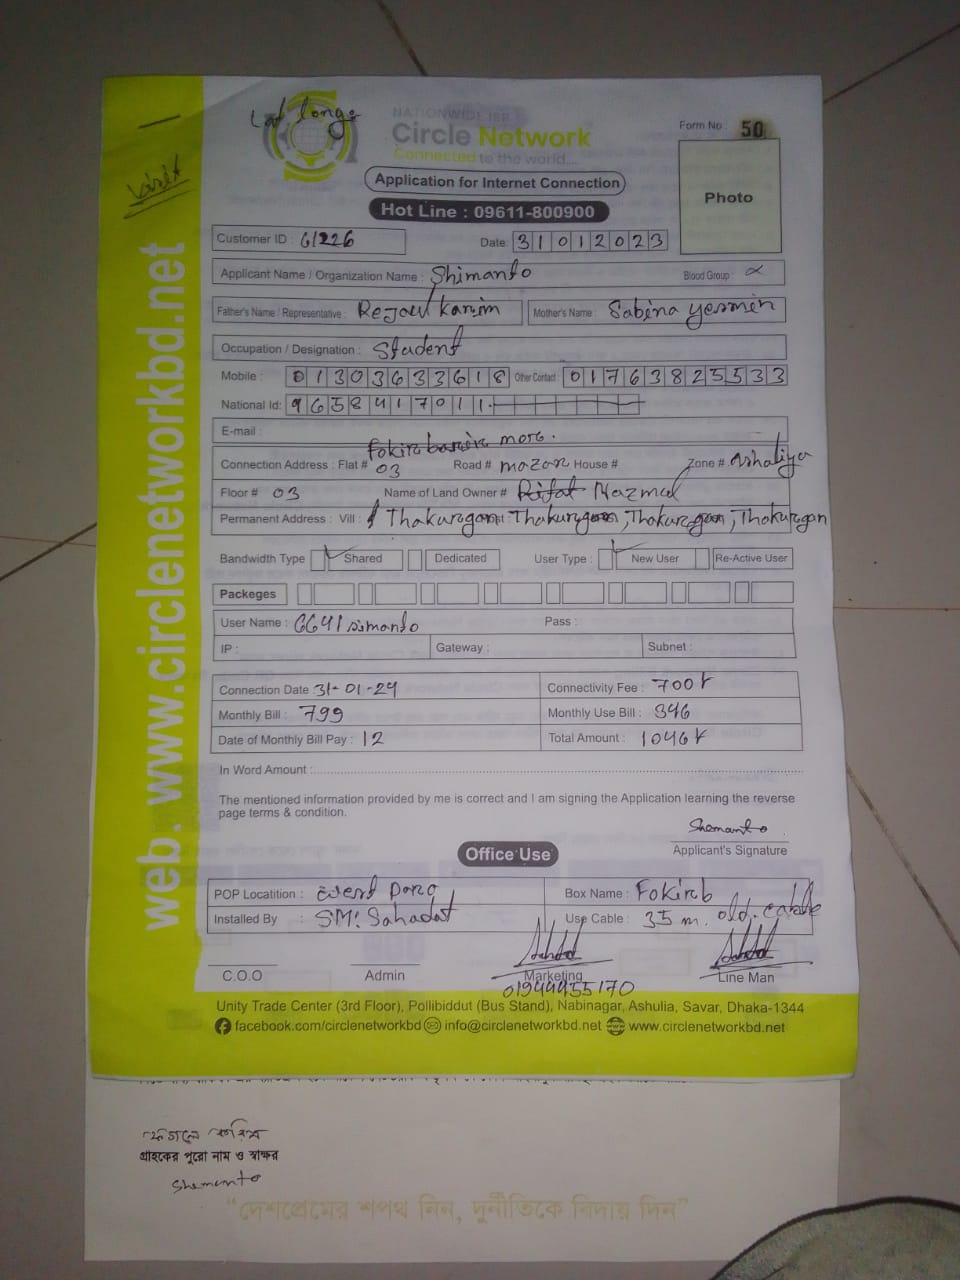 Lat longe
NATIONWIDE ISP
Circle Network
Connected to the world...
Form No : 50
Application for Internet Connection
Photo
Hot Line : 09611-800900
Customer ID : 61226 Date: 31012023
Applicant Name / Organization Name : Shimanto Blood Group :
Father's Name / Representative : Rejaul karim Mother's Name : Sabina yesmin
Occupation / Designation : Student
Mobile : 01303633618 Other Contact : 01763825533
National Id: 9658417011
E-mail :
Fokir barir more.
Connection Address : Flat # 03 Road # mazar House # Zone # Ashaliya
Floor # 03 Name of Land Owner # Nazmul
Permanent Address : Vill : Thakurgaon Thakurgaon, Thakurgaon, Thakurgaon
Bandwidth Type Shared Dedicated User Type : New User Re-Active User
Packeges
User Name : 6641simanto Pass :
IP : Gateway : Subnet :
Connection Date : 31-01-24 Connectivity Fee : 700৳
Monthly Bill : 799 Monthly Use Bill : 346
Date of Monthly Bill Pay : 12 Total Amount : 1046৳
In Word Amount :
The mentioned information provided by me is correct and I am signing the Application learning the reverse
page terms & condition.
Shemanto
Applicant's Signature
Office Use
POP Locatition : Box Name : Fokirb
Installed By : SM: Sahadat Use Cable : 35 m. old. cable
C.O.O Admin Marketing Line Man
01944455170
Unity Trade Center (3rd Floor), Pollibiddut (Bus Stand), Nabinagar, Ashulia, Savar, Dhaka-1344
facebook.com/circlenetworkbd info@circlenetworkbd.net www.circlenetworkbd.net
web. www.circlenetworkbd.net
গ্রাহকের পুরো নাম ও স্বাক্ষর
Shemanto
“দেশপ্রেমের শপথ নিন, দুর্নীতিকে বিদায় দিন”